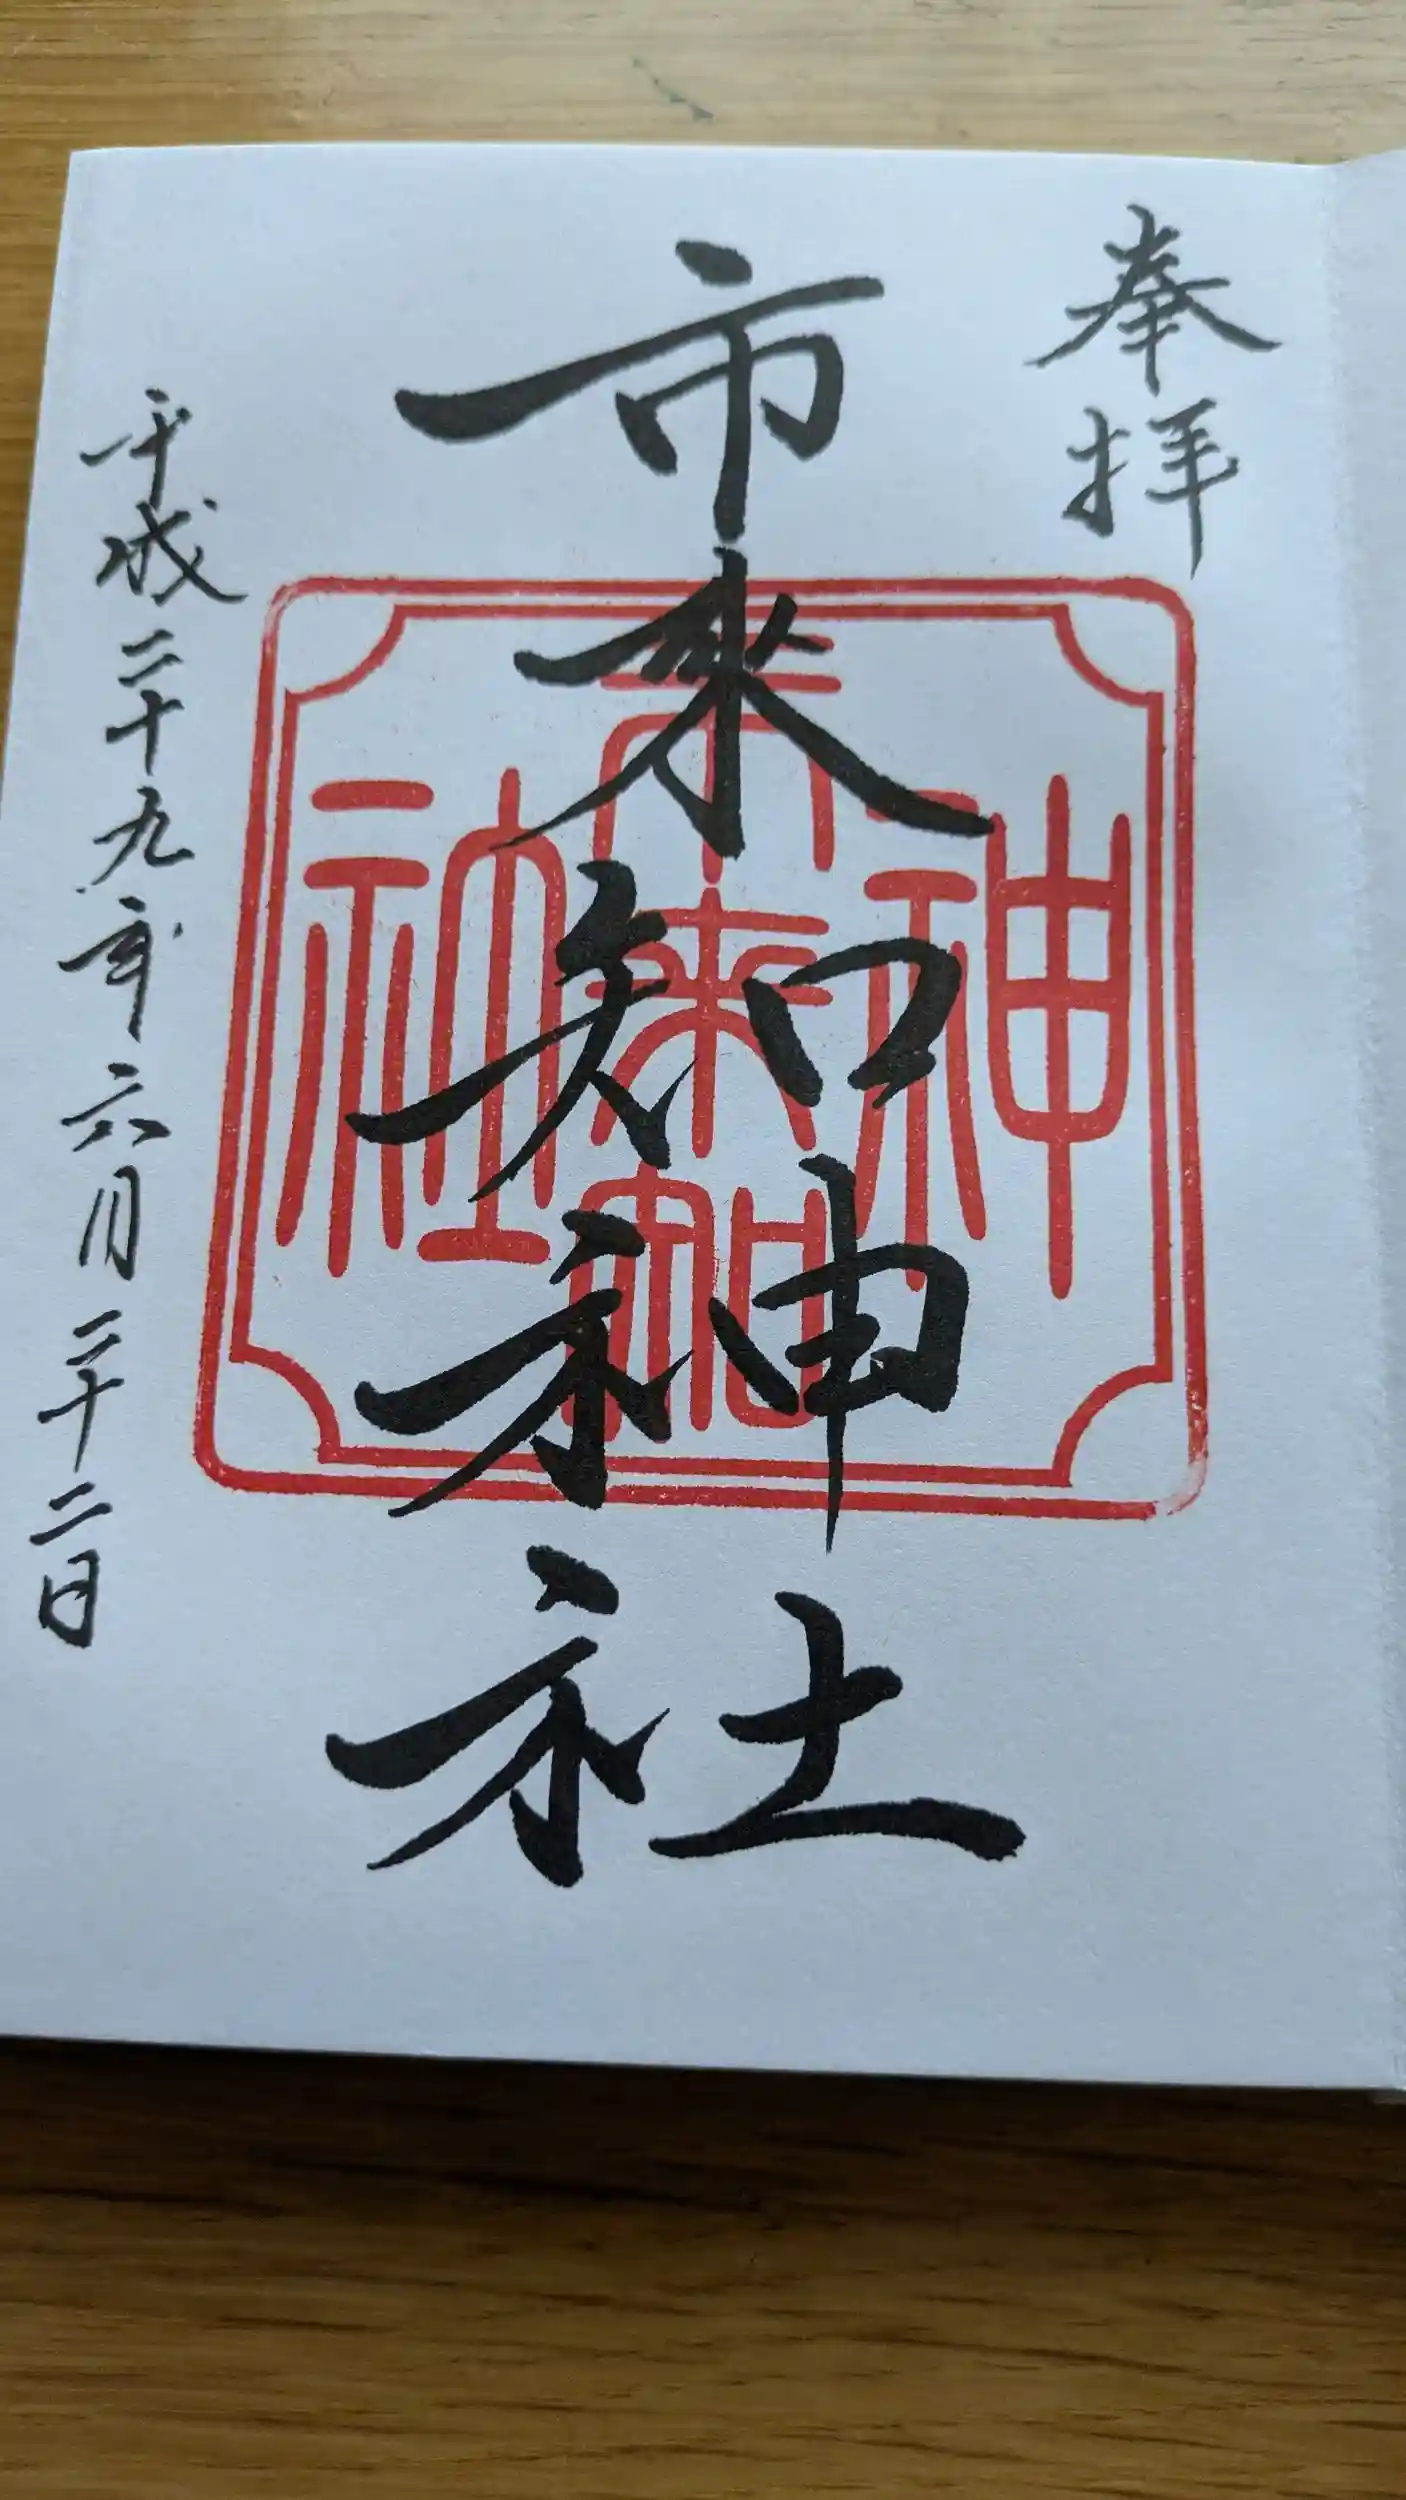 奉拝
市来知神社
神
市来知
社
平成二十九年六月二十二日